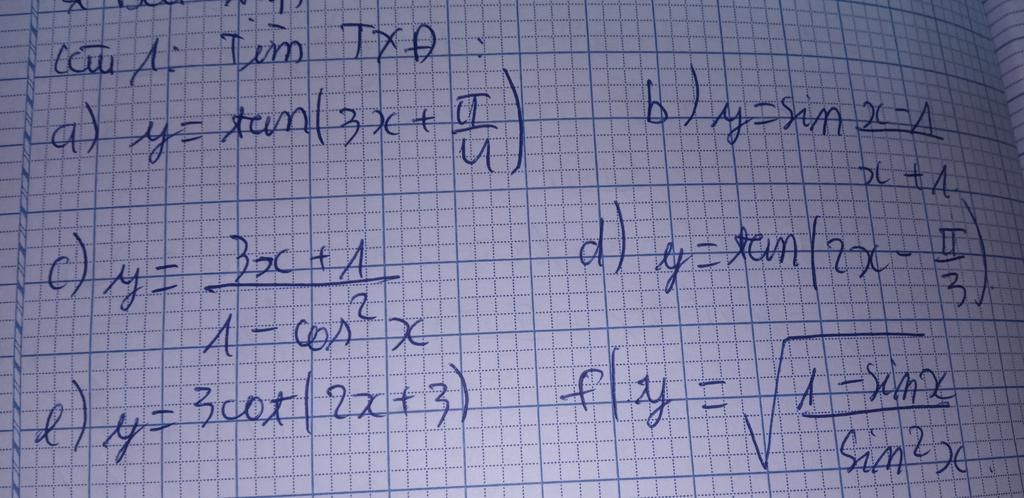 Câu 1: Tìm TXĐ :
a) y = tan(3x + π/4) b) y = sin (x - 1)/(x + 1)
c) y = (3x + 1)/(1 - cos²x) d) y = tan(2x - π/3)
e) y = 3cot(2x + 3) f) y = √((1 - sinx)/(sin²x))